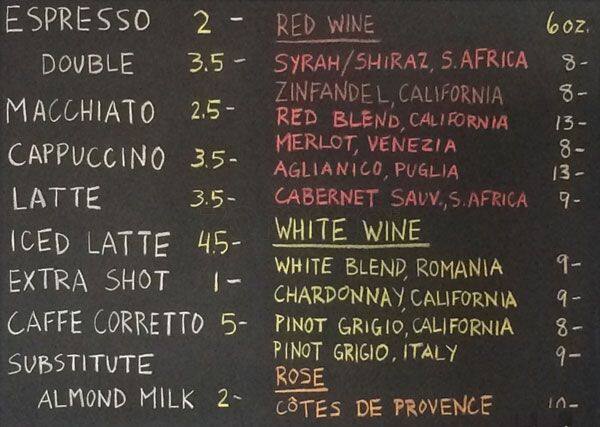 ESPRESSO 2 -
DOUBLE 3.5 -
MACCHIATO 2.5 -
CAPPUCCINO 3.5 -
LATTE 3.5 -
ICED LATTE 4.5 -
EXTRA SHOT 1 -
CAFFE CORRETTO 5 -
SUBSTITUTE
ALMOND MILK 2 -
RED WINE 6oz.
SYRAH/SHIRAZ, S. AFRICA 8 -
ZINFANDEL, CALIFORNIA 8 -
RED BLEND, CALIFORNIA 13 -
MERLOT, VENEZIA 8 -
AGLIANICO, PUGLIA 13 -
CABERNET SAUV., S. AFRICA 9 -
WHITE WINE
WHITE BLEND, ROMANIA 9 -
CHARDONNAY, CALIFORNIA 9 -
PINOT GRIGIO, CALIFORNIA 8 -
PINOT GRIGIO, ITALY 9 -
ROSE
CÔTES DE PROVENCE 10 -